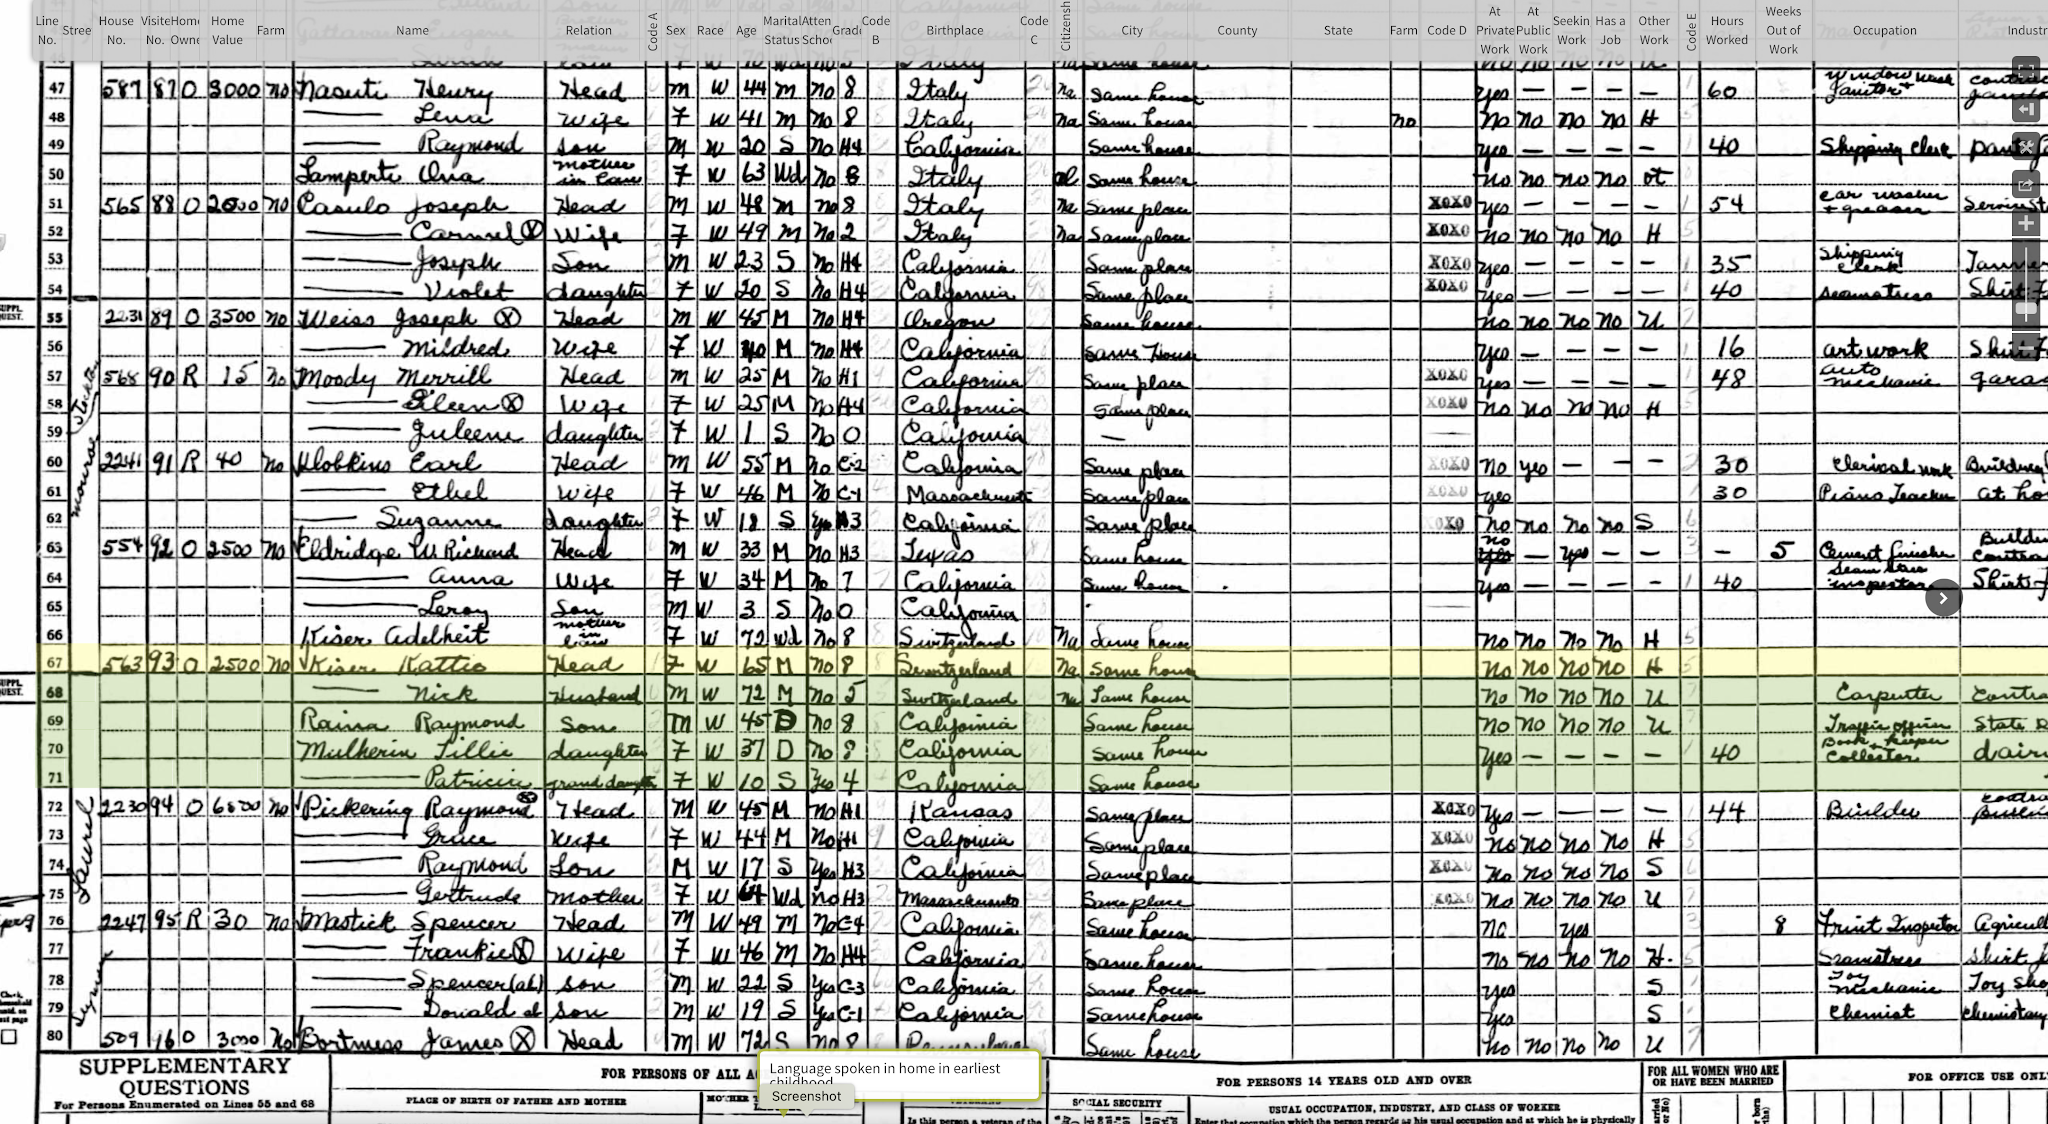 Line No. Stree House No. Visite No. Home Owne Home Value Farm Name Relation Code A Sex Race Age Marital Status Atten Schoo Grade Code B Birthplace Code C Citizensh City County State Farm Code D At Private Work At Public Work Seekin Work Has a Job Other Work Code E Hours Worked Weeks Out of Work Occupation Industr
47 587 87 O 3000 no Nasuti Henry Head M W 44 M No 8 Italy na Same house yes — — — — 60 Janitor
48 Lena Wife F W 41 M No 8 Italy na Same house no No No No No H
49 Raymond Son M W 20 S No H4 California Same house yes — — — — 40 Shipping Clerk
50 Lamperti mother in law F W 63 Wd No 8 Italy al Same house no no no No ot
51 565 88 O 2500 no Casulo Joseph Head M W 48 M No 8 Italy na Same place X0X0 yes — — — — 54 car washer + greaser
52 Carmel X Wife F W 49 M No 2 Italy na Same place X0X0 No No No No H
53 Joseph Son M W 23 S No H4 California Same place X0X0 yes — — — — 35 Shipping clerk
54 Violet daughter F W 20 S No H4 California Same place X0X0 yes — — — — 40 seamstress Shirt
SUPPL. QUEST.
55 2231 89 O 3500 no Weiss Joseph X Head M W 45 M No H4 Oregon Same house no no No No U
56 Mildred Wife F W 40 M No H4 California Same House yes — — — — 16 art work Shirt
57 568 90 R 15 No Moody Merrill Head M W 25 M No H1 California Same place X0X0 yes — — — — 48 auto mechanic garag
58 Eileen X Wife F W 25 M No H4 California Same place X0X0 no No No No H
59 Juleene daughter F W 1 S No 0 California —
60 2241 91 R 40 No Hobkins Earl Head M W 55 M No C-2 California Same place X0X0 No yes — — — 30 Clerical work Building
61 Ethel Wife F W 46 M No C-1 Massachusetts Same place X0X0 yes 30 Piano Teacher at ho
62 Suzanne daughter F W 18 S Yes H3 California Same place X0X0 no no No no S
63 554 92 O 2500 No Eldridge W. Richard Head M W 33 M No H3 Texas Same house no yes — yes — — — 5 Cement finisher
64 Anna Wife F W 34 M No 7 California Same house yes — — — — 40 inspector Shirt
65 Leroy Son M W 3 S No 0 California
66 Kiser Adelheit mother in law F W 72 Wd No 8 Switzerland Na Same house No No No No H
67 563 93 O 2500 No Kiser Kattie Head F W 65 M No 8 Switzerland Na Same house No No No No H
SUPPL. QUEST.
68 Nick Husband M W 72 M No 5 Switzerland na Same house No No No No U Carpenter Contra
69 Raina Raymond Son M W 45 D No 8 California Same house No No No No U Traffic officer State
70 Mulherin Tillie daughter F W 37 D No 8 California Same house Yes — — — — 40 Book + keeper Collector dair
71 Patricia grand daughter F W 10 S Yes 4 California Same house
72 2230 94 O 6800 no Pickering Raymond X Head M W 45 M No H1 Kansas Same place X0X0 yes — — — — 44 Builder
73 Grace Wife F W 44 M No H1 California Same place X0X0 no no No No H
74 Raymond Son M W 17 S Yes H3 California Same place X0X0 No No No No S
75 Gertrude mother F W 64 Wd no H3 Massachusetts Same place X0X0 no no No No U
76 2247 95 R 30 No Mastick Spencer Head M W 49 M No C-4 California Same house no yes 8 Fruit Inspector Agricul
77 Frankie X Wife F W 46 M No H4 California Same house no No No No H. Seamstress Shirt
78 Spencer (ab) son M W 22 S Yes C-3 California Same house yes S Toy mechanic Toy sho
79 Donald ab son M W 19 S Yes C-1 California Same house yes S Chemist Chemistry
80 509 16 O 3000 No Bortmess James X Head M W 72 S No 8 Same house no No No No U
Stockton
monroe
Laurel
Lyman
SUPPLEMENTARY
QUESTIONS
For Persons Enumerated on Lines 55 and 68
FOR PERSONS OF ALL A
PLACE OF BIRTH OF FATHER AND MOTHER
Language spoken in home in earliest
childhood
Screenshot
FOR PERSONS 14 YEARS OLD AND OVER
SOCIAL SECURITY
Is this person a veteran of the
USUAL OCCUPATION, INDUSTRY, AND CLASS OF WORKER
Enter that occupation which the person regards as his usual occupation and at which he is physically
FOR ALL WOMEN WHO ARE
OR HAVE BEEN MARRIED
FOR OFFICE USE ONL